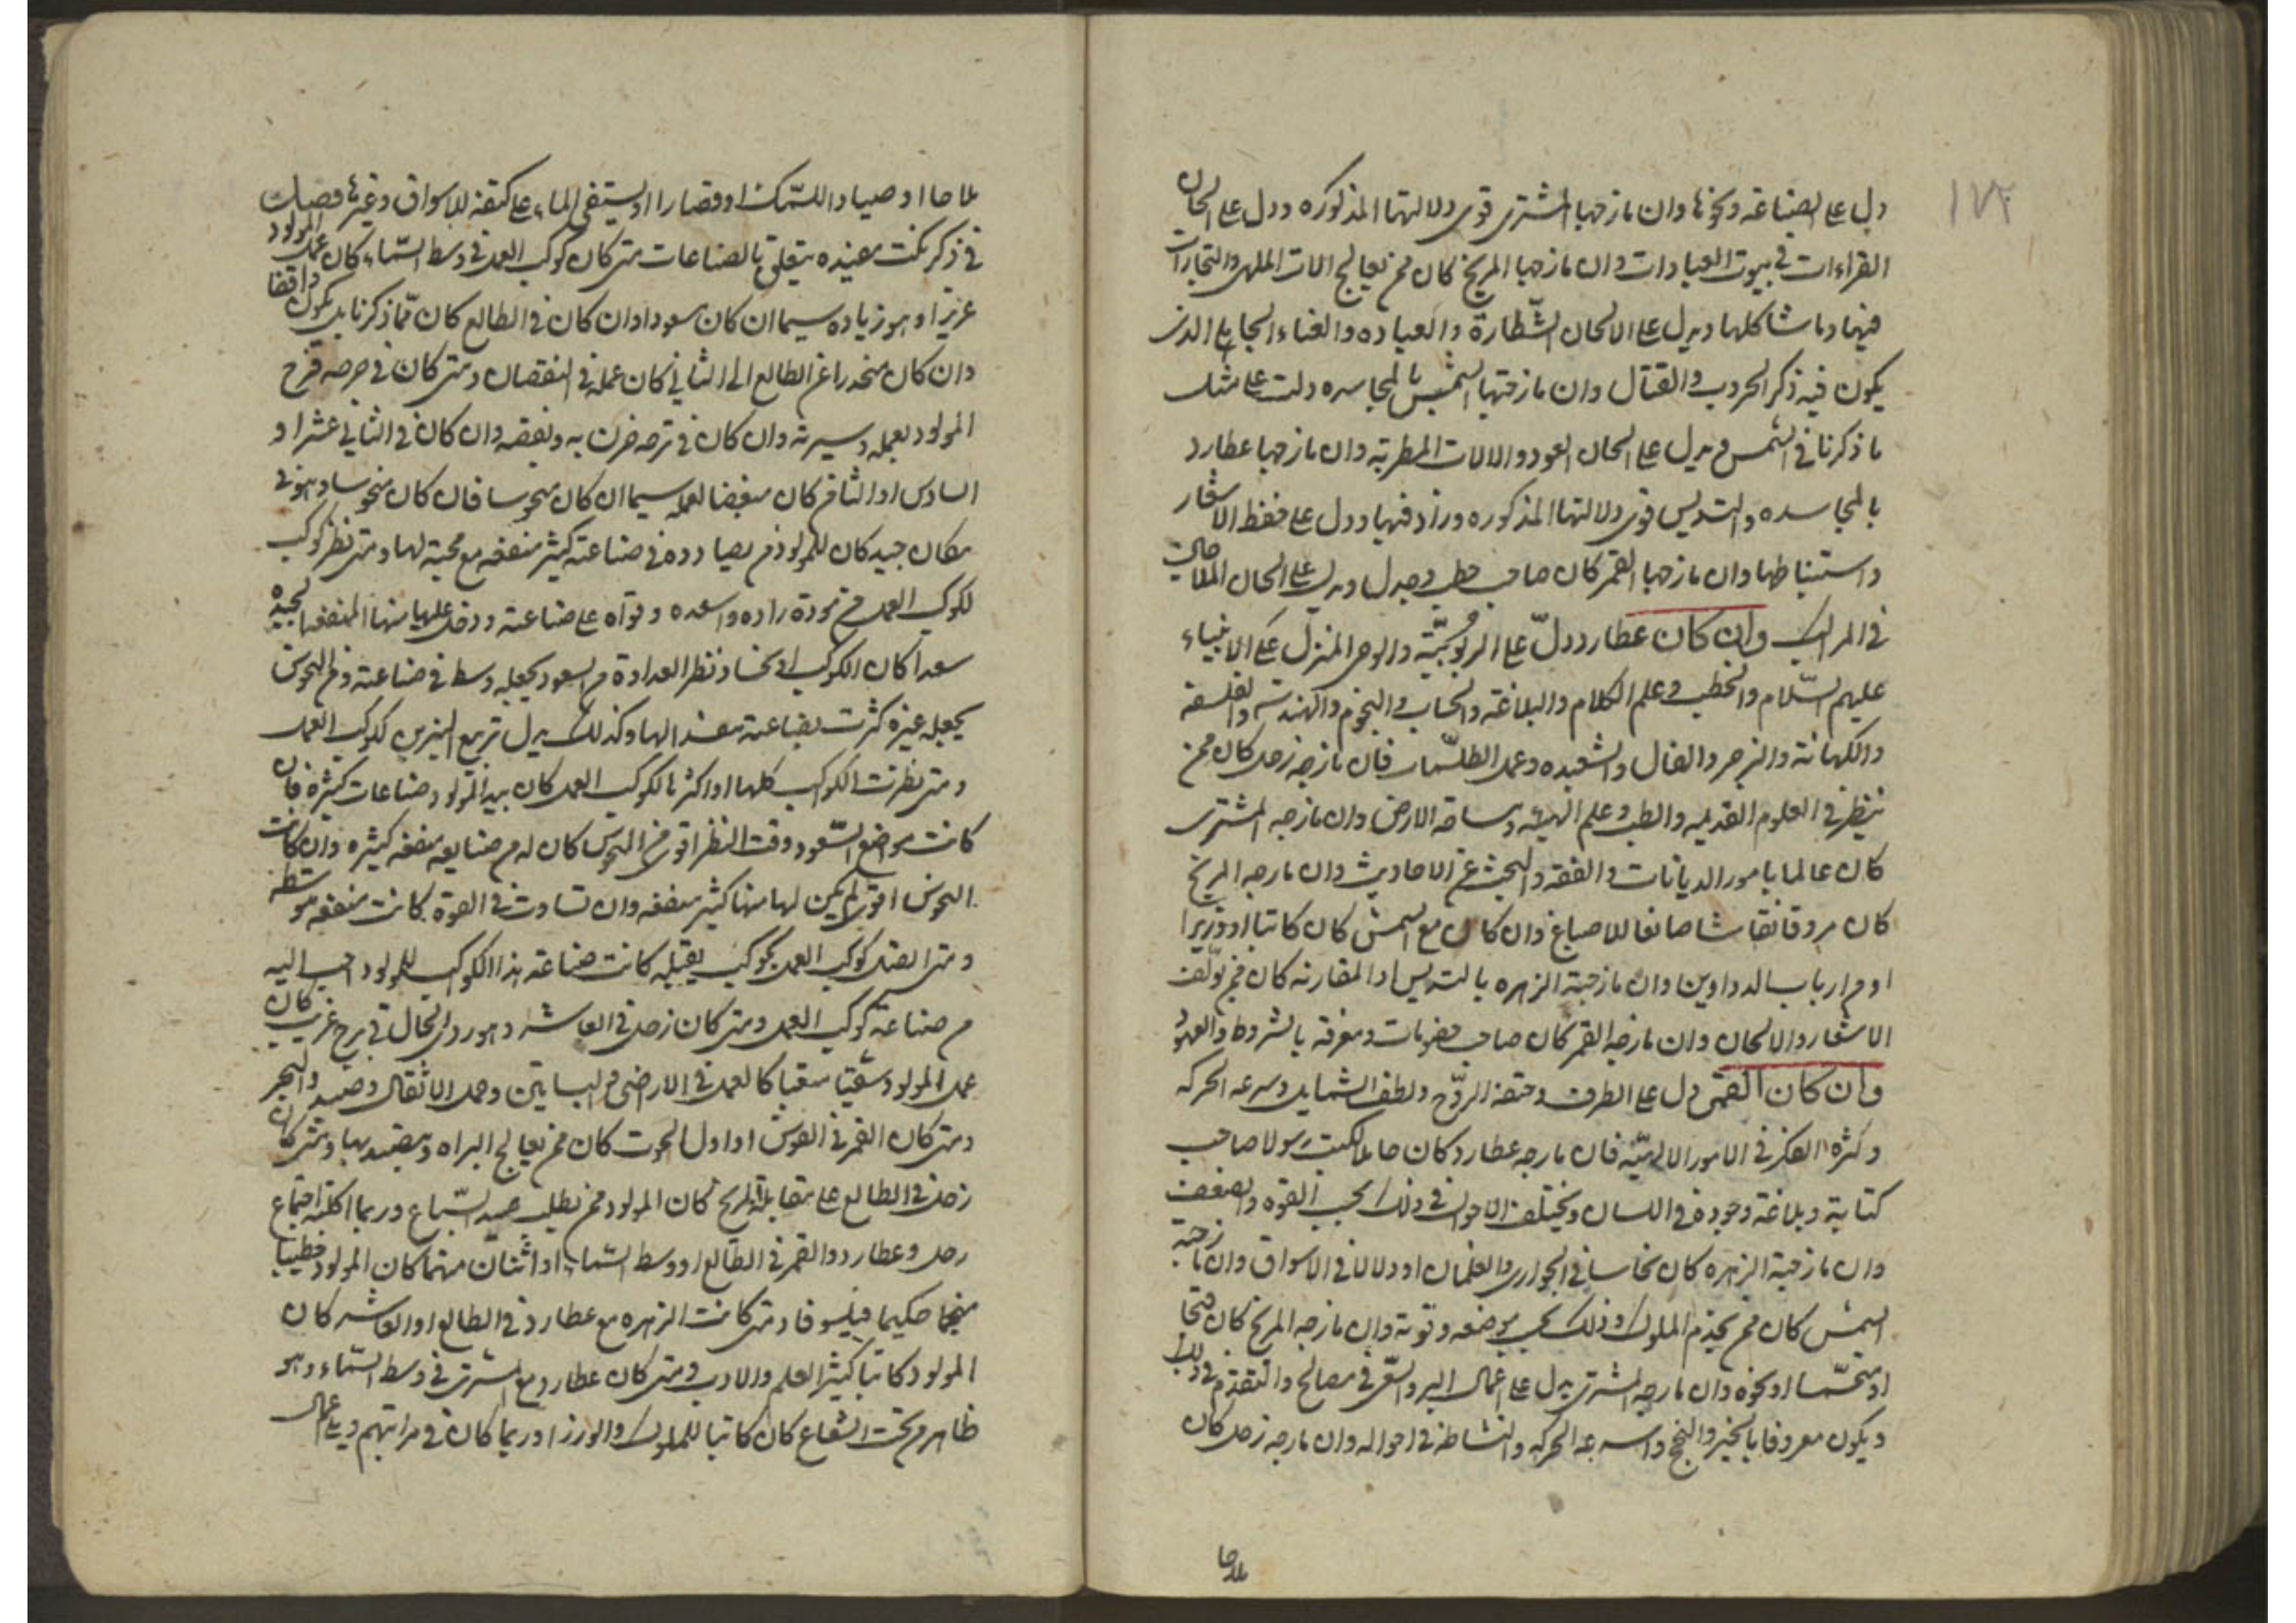 ١٧٢
دل على الصناعة ونحوها وان مازجها المشترى قوى دلالتها المذكوره ودل على الحان
القراءات فى بيوت العبادات وان مازجها المريخ كان ممن يعالج الات الملهى والتجارات
فيها وما شاكلها ويدل على الالحان الشطارة والعياده والغناء الجابلى الذى
يكون فيه ذكر الحروب والقتال وان مازجتها الشمس بالمجاسره دلت على مثل
ما ذكرنا فى الشمس ويدل على الحان العود والالات المطربة وان مازجها عطارد
بالمجاسده والتسديس قوى دلالتها المذكوره وزاد فيها ودل على حفظ الاشعار
واستنباطها وان مازجها القمر كان صاحب خطب وجدل ويدل على الحان الملاحين
فى المراكب وان كان عطارد دل على الربوبية والوحى المنزل على الانبياء
عليهم السلام والخطب وعلم الكلام والبلاغة والحساب والنجوم والهندسة والفلسفة
والكهانة والزجر والفال والشعبده وعمل الطلسمات فان مازجه زحل كان ممن
ينظر فى العلوم القديمه والطب وعلم الهيئه ومساحة الارض وان مازجه المشترى
كان عالما بامور الديانات والفقه والبحث عن الاحاديث وان مازجه المريخ
كان مروقا نقاشا صانعا للاصباغ وان كان مع الشمس كان كاتبا او وزيرا
او من ارباب الدواوين وان مازجته الزهره بالتسديس او المقارنه كان ممن يولف
الاشعار والالحان وان مازجه القمر كان صاحب خصومات ومعرفة بالشروط والعهود
وان كان القمر دل على الظرف وخفة الروح ولطف الشمايل وسرعه الحركه
وكثرة الفكر فى الامور الالهية فان مازجه عطارد كان حاملا لكتب رسولا صاحب
كتابة وبلاغة وجودة فى اللسان ويختلف الاحوال فى ذلك بحسب القوه والضعف
وان مازجته الزهره كان نخاسا فى الجوارى والغلمان او دلالا فى الاسواق وان مازجته
الشمس كان ممن يخدم الملوك وذلك بحسب موضعه وقوته وان مازجه المريخ كان
او نحوه وان مازجه المشترى يدل على اعمال البر والسعى فى مصالح والتقدم فى ذلك
ويكون معروفا بالخير والنجح والسرعه الحركه والنشاط فى احواله وان مازجه زحل كان
ملاحا
ملاحا او صيادا للسمك او قصارا او يستقى الماء على كتفه للاسواق وغيرها فصل
فى ذكر نكت مفيده يتعلق بالصناعات متى كان كوكب العمل فى وسط السماء كان عمل المولود
عزيزا وهو زياده سيما ان كان مسعودا وان كان فى الطالع كان مما ذكرنا بل يكون واقفا
وان كان منحدرا عن الطالع الى الثانى كان عمله فى النقصان ومتى كان فى فرحه فرح
المولود بعمله وسيرته وان كان فى ترحه حزن به وبغضه وان كان فى الثانى عشر او
السادس او الثامن كان مبغضا لعمله سيما ان كان منحوسا فان كان منحوسا وهو فى
مكان جيد كان للمولود فى صناعته كثير منفعه مع محبة لها ومتى نظر كوكب
لكوكب العمل من مودة زاده واسعده وقواه على صناعته ودخل عليها منها المنفعه الجيده
سعدا كان الكوكب او نحسا ونظر العداوة من السعود يجعله وسط فى صناعته ومن النحوس
يجعله غيره وكذلك يدل تربيع النيرين كوكب العمل
ومتى نظرت الكواكب كلها او اكثرها لكوكب العمل كان بيد المولود صناعات كثيرة فان
كانت مواضع السعود وقت النظر اقوى من النحوس كان له من صنايعه منفعه كثيره وان كانت
النحوس اقوى لم يكن لها منها كثير منفعه وان تساوت فى القوة كانت منفعه متوسطه
ومتى اتصل كوكب العمل بكوكب يقبله كانت صناعة هذا الكوكب للمولود احب اليه
من صناعة كوكب العمل ومتى كان زحل فى العاشر وهو ردى الحال فى برج غريب كان
عمل المولود شقيا متعبا كالعمل فى الارضين والبساتين وحمل الاثقال وصيد البحر
ومتى كان القمر فى القوس او اول الحوت كان ممن يعالج البزاه ويتصيد بها ومتى كان
زحل فى الطالع على مقابلة المريخ كان المولود ممن يطلب صيد السباع وربما اكلته اجتماع
زحل وعطارد والقمر فى الطالع او وسط السماء او اثنان منهما كان المولود خطيبا
منجما حكيما فيلسوفا ومتى كانت الزهره مع عطارد فى الطالع او العاشر كان
المولود كاتبا كثير العلم والادب ومتى كان عطارد مع المشترى فى وسط السماء وهو
ظاهر من تحت الشعاع كان كاتبا للملوك والوزرا وربما كان فى مراتبهم ويلى اعمال